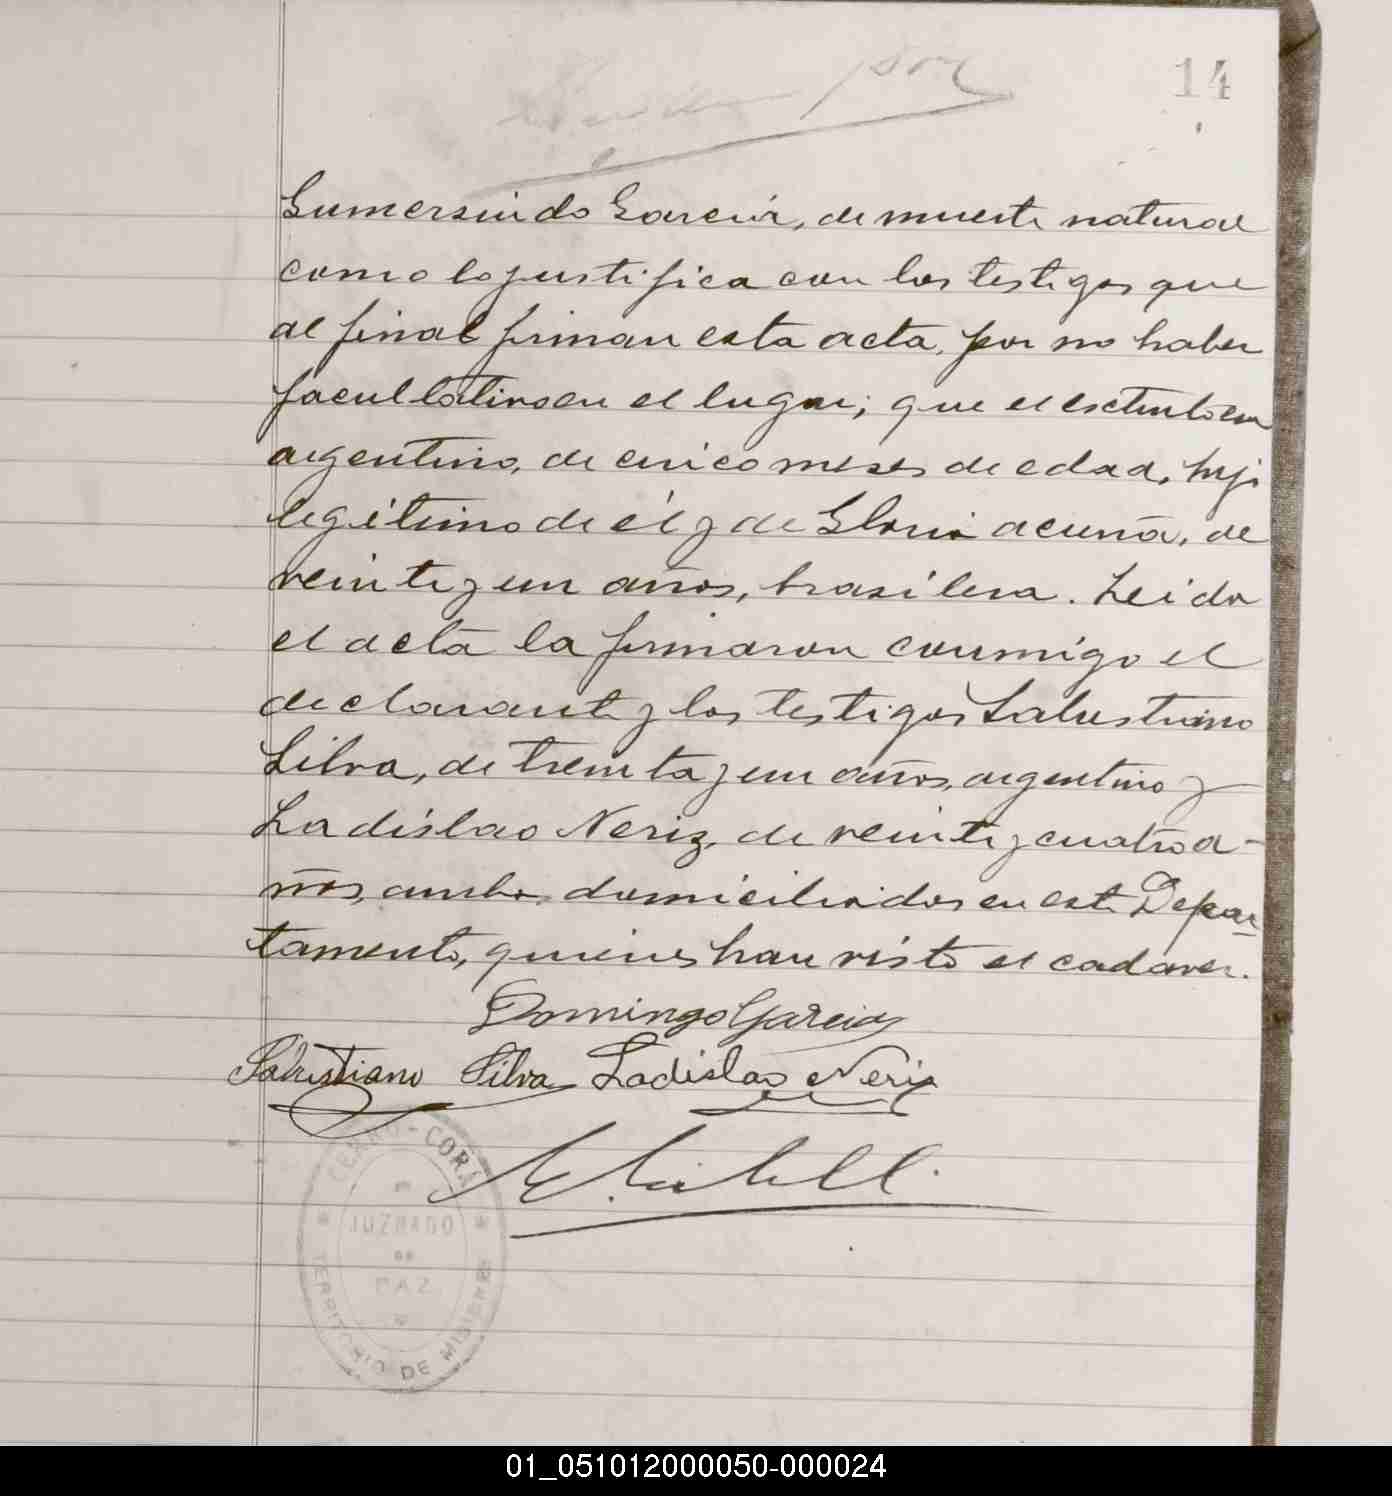 14
Gumersindo Garcia, de muerte natural
como lo justifica con los testigos que
al final firman esta acta, por no haber
facultativo en el lugar; que el extinto era
argentino, de cinco meses de edad, hijo
legitimo de él y de Gloria acuña, de
veinte y un años, brasilera. Leida
el acta la firmaron conmigo el
declarante y los testigos Salustiano
Silva, de treinta y un años, argentino y
Ladislao Neriz, de veinte y cuatro a-
ños, ambos domiciliados en este Depar-
tamento, quienes han visto el cadaver.
Domingo Garcia
Salustiano Silva Ladislao Neriz
CERRO-CORÁ
JUZGADO
DE
PAZ
TERRITORIO DE MISIONES
01_051012000050-000024